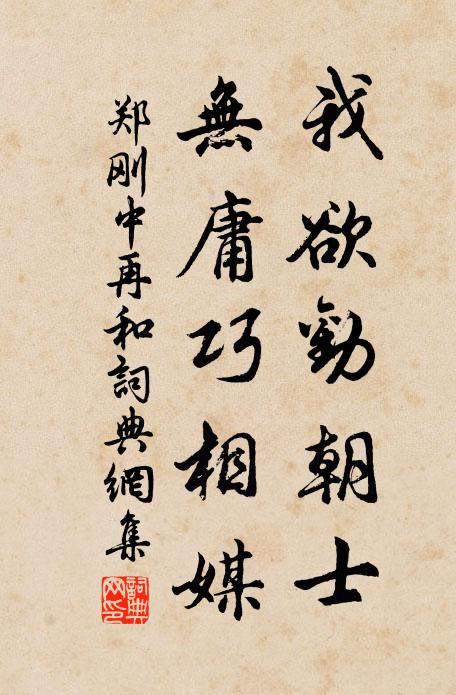 我欲勸朝士
無庸巧相媒
郑刚中再和詞典網集
詞典網印